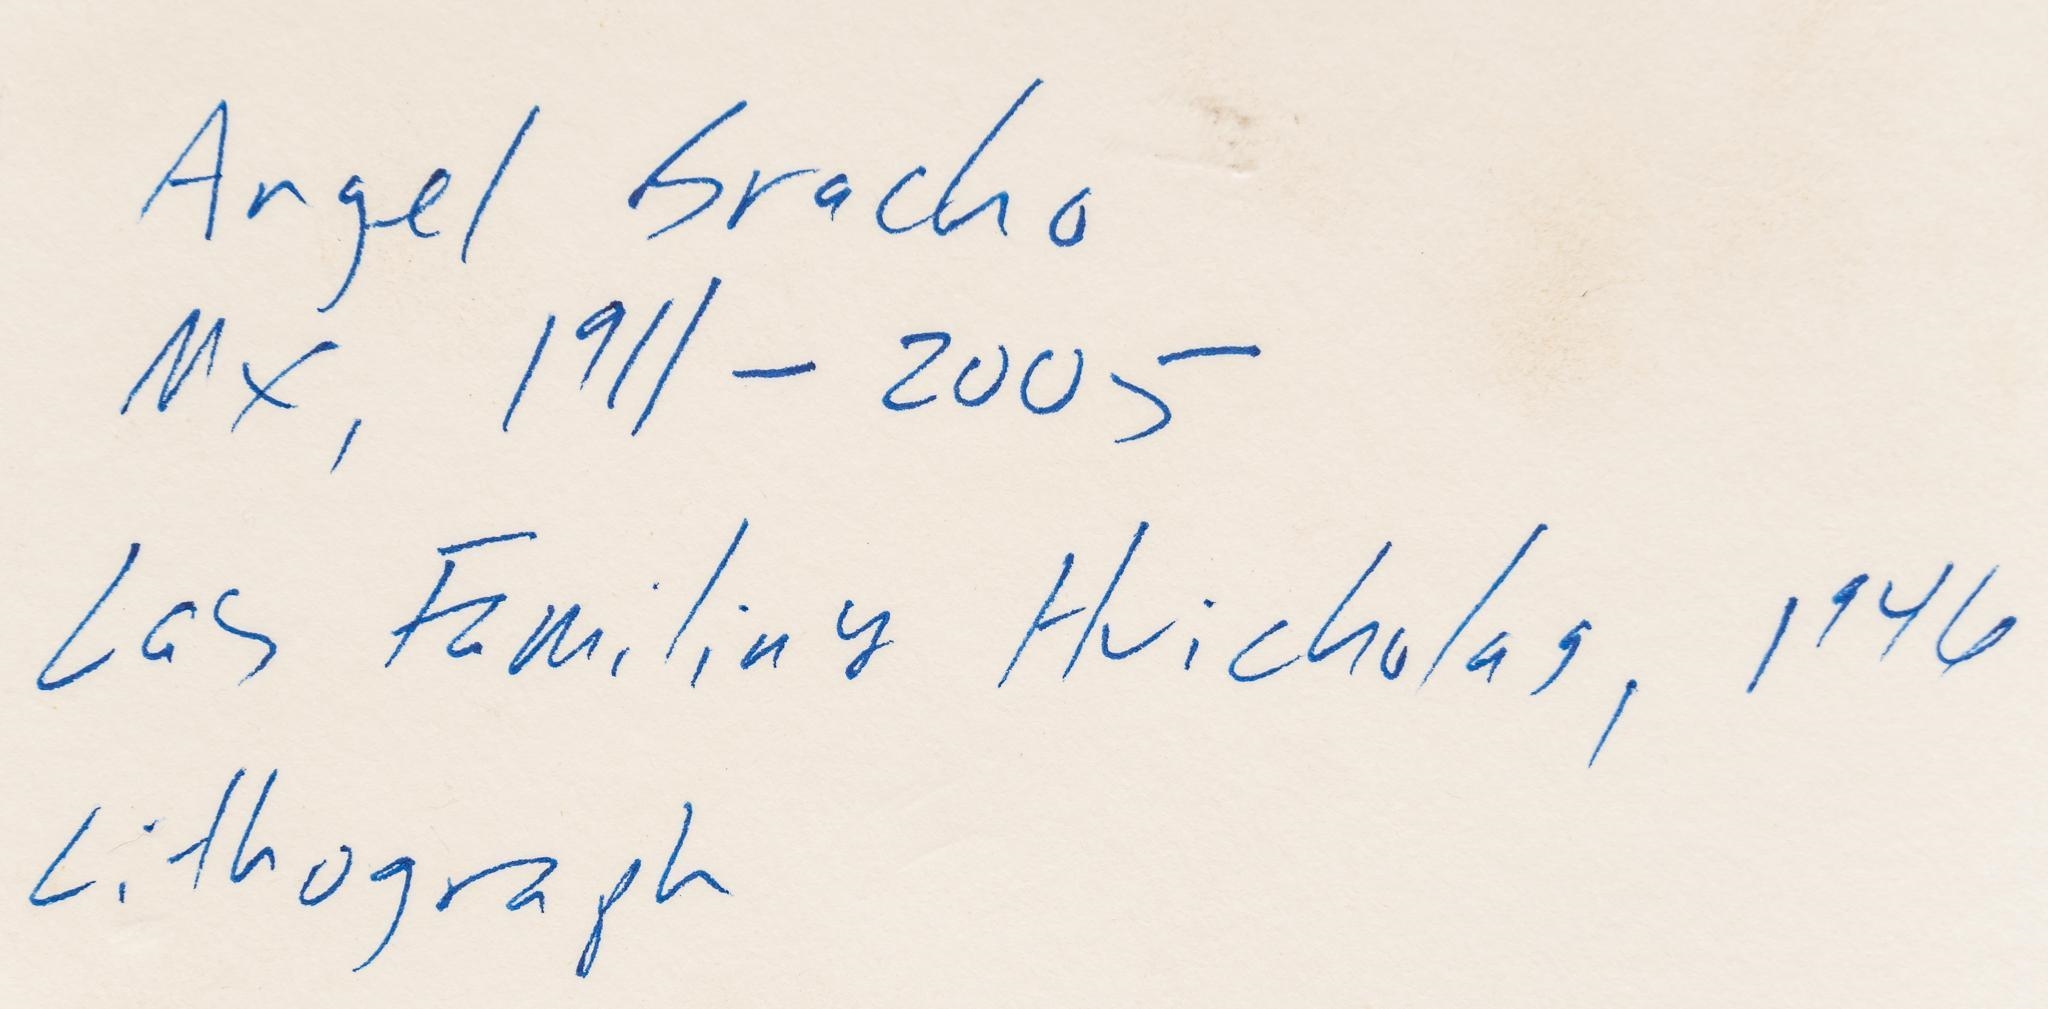 Angel Bracho
Mx, 1911 - 2005
Las Familias Huicholas, 1946
Lithograph